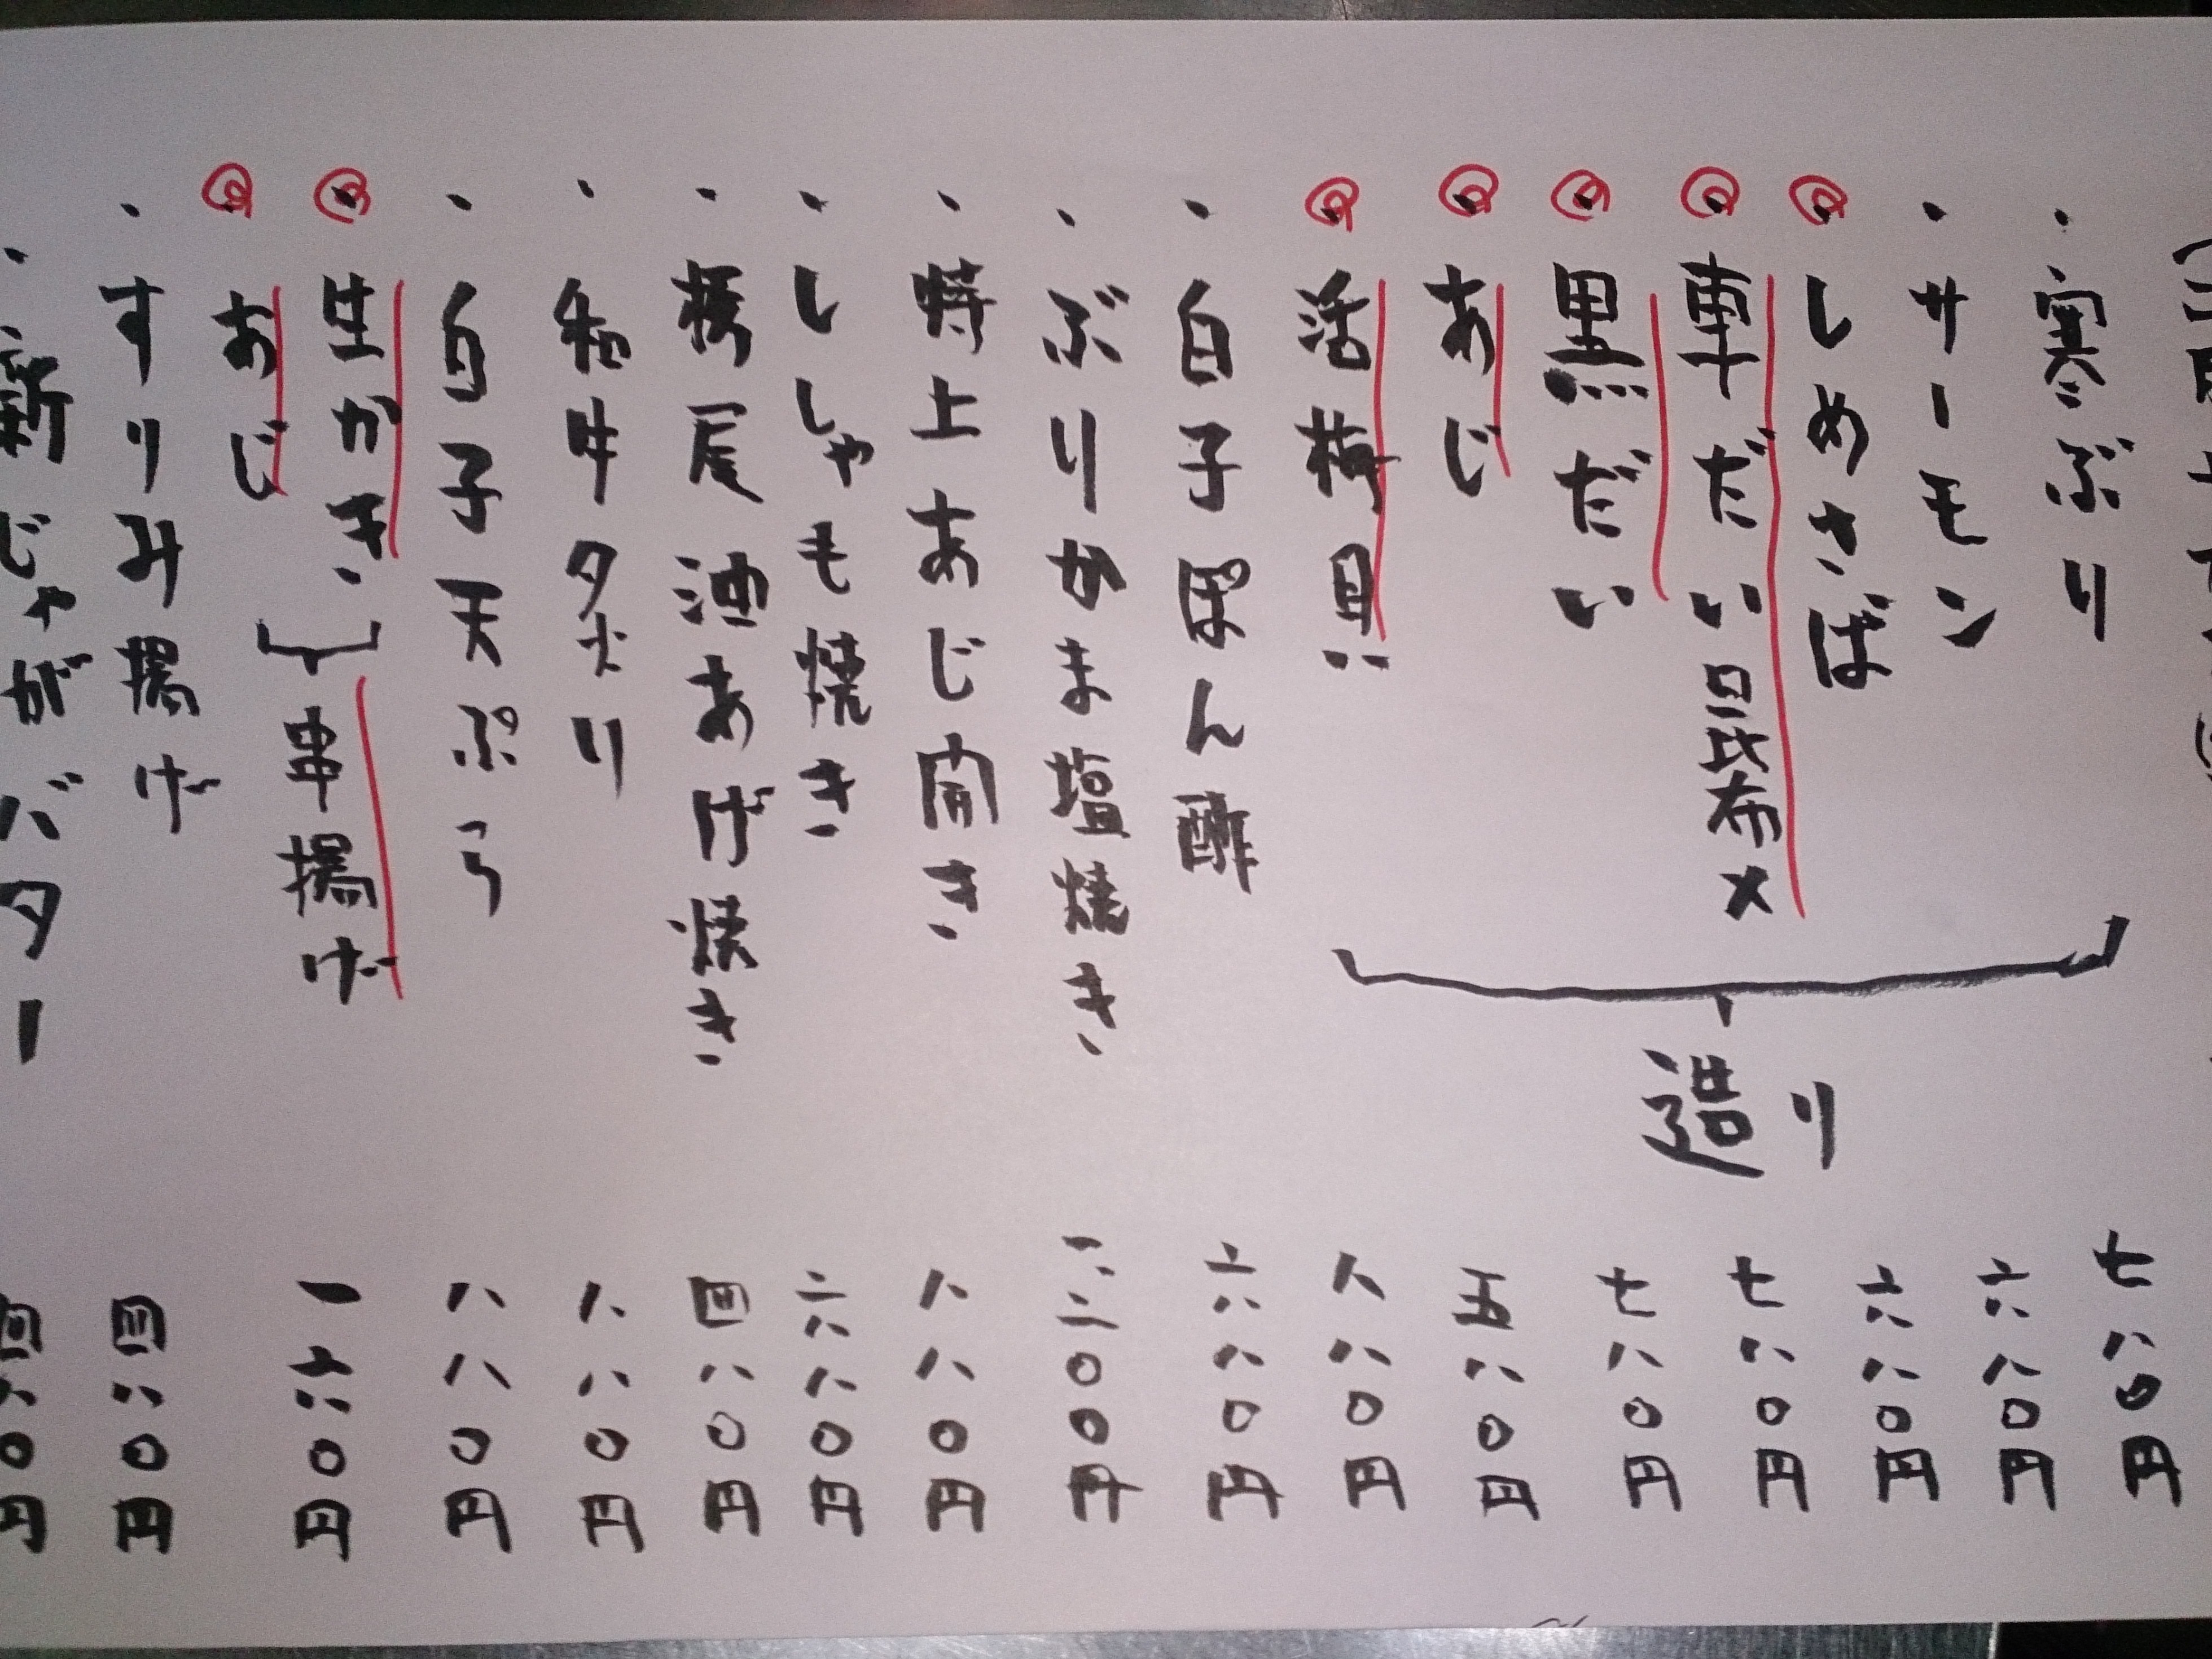 ・寒ぶり 七八〇円
・サーモン 六八〇円
・しめさば 六八〇円
・車だい昆布〆 七八〇円
・黒だい 七八〇円
・あじ 五八〇円
・活梅貝 八八〇円
造り
・白子ぽん酢 六八〇円
・ぶりかま塩焼き 一二〇〇円
・特上あじ開き 八八〇円
・ししゃも焼き 六八〇円
・栃尾油あげ焼き 四八〇円
・和牛タタキ 八八〇円
・白子天ぷら 八八〇円
・生かき
・あじ
串揚げ 一六〇円
・すりみ揚げ 四八〇円
・新じゃがバター 四八〇円